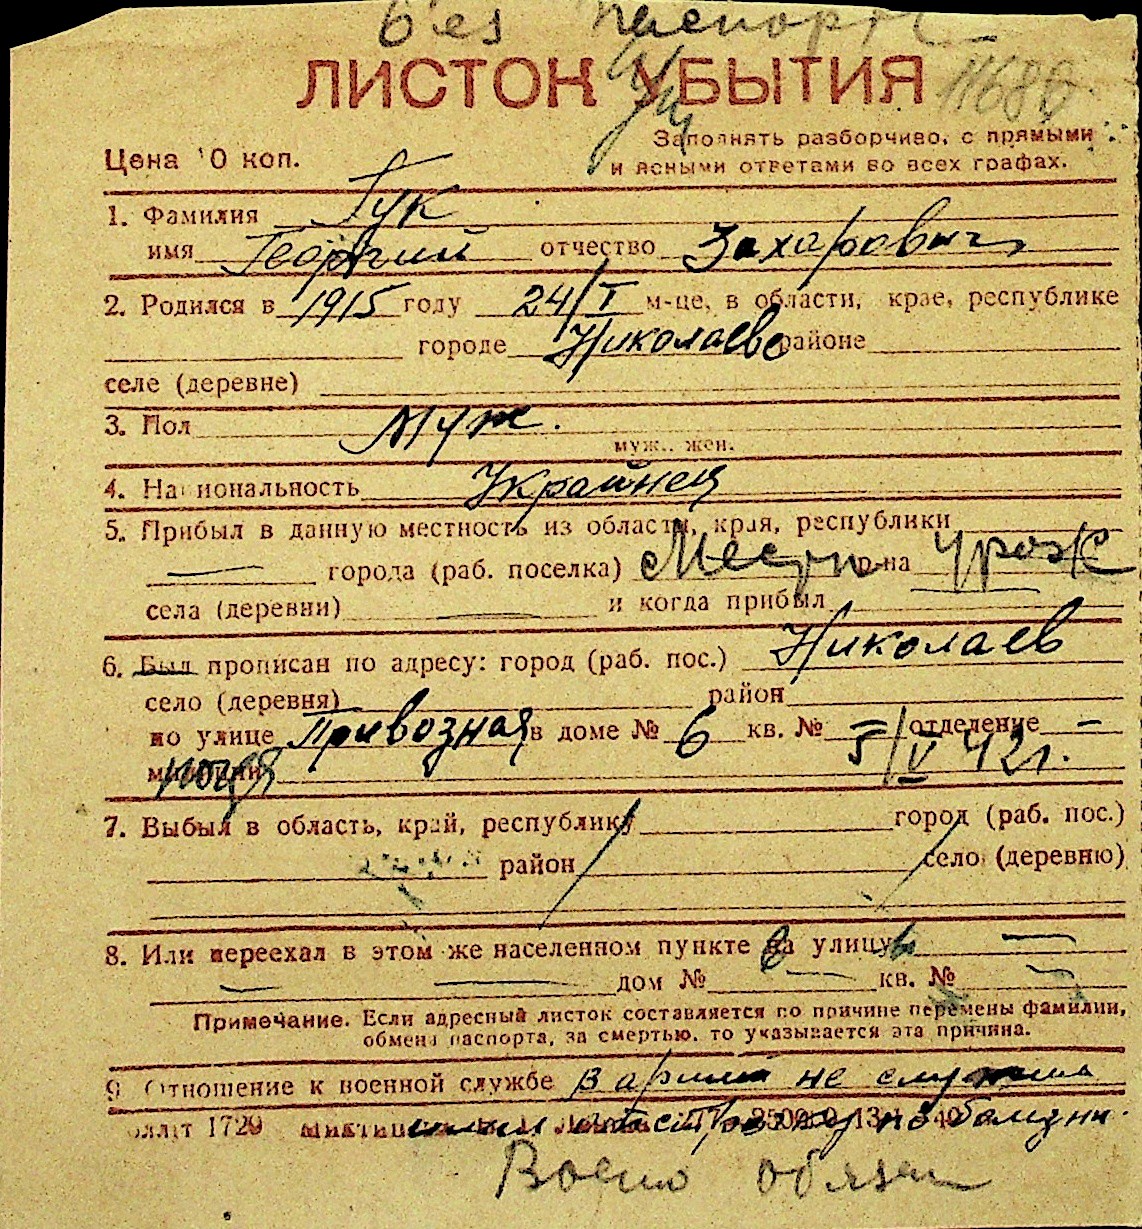 без паспорт
ЛИСТОК УБЫТИЯ 11680
Заполнять разборчиво, с прямыми
Цена 10 коп. и ясными ответами во всех графах.
1. Фамилия Гук
имя Георгий отчество Захарович
2. Родился в 1915 году 24/I м-це, в области, крае, республике
городе Николаеве районе
селе (деревне)
3. Пол Муж.
муж., жен.
4. Национальность Украинец
5. Прибыл в данную местность из области, края, республики
— города (раб. поселка) Местн р-на урож
села (деревни) — и когда прибыл
6. Был прописан по адресу: город (раб. пос.) Николаев
село (деревня) район
по улице Привозная в доме № 6 кв. № – отделение –
милиции когда 5/V 42 г.
7. Выбыл в область, край, республику город (раб. пос.)
район село (деревню)
8. Или переехал в этом же населенном пункте на улицу —
— — дом № — кв. № —
Примечание. Если адресный листок составляется по причине перемены фамилии,
обмена паспорта, за смертью, то указывается эта причина.
9 Отношение к военной службе в армии не служил
1729 по болезни.
Воено обязан